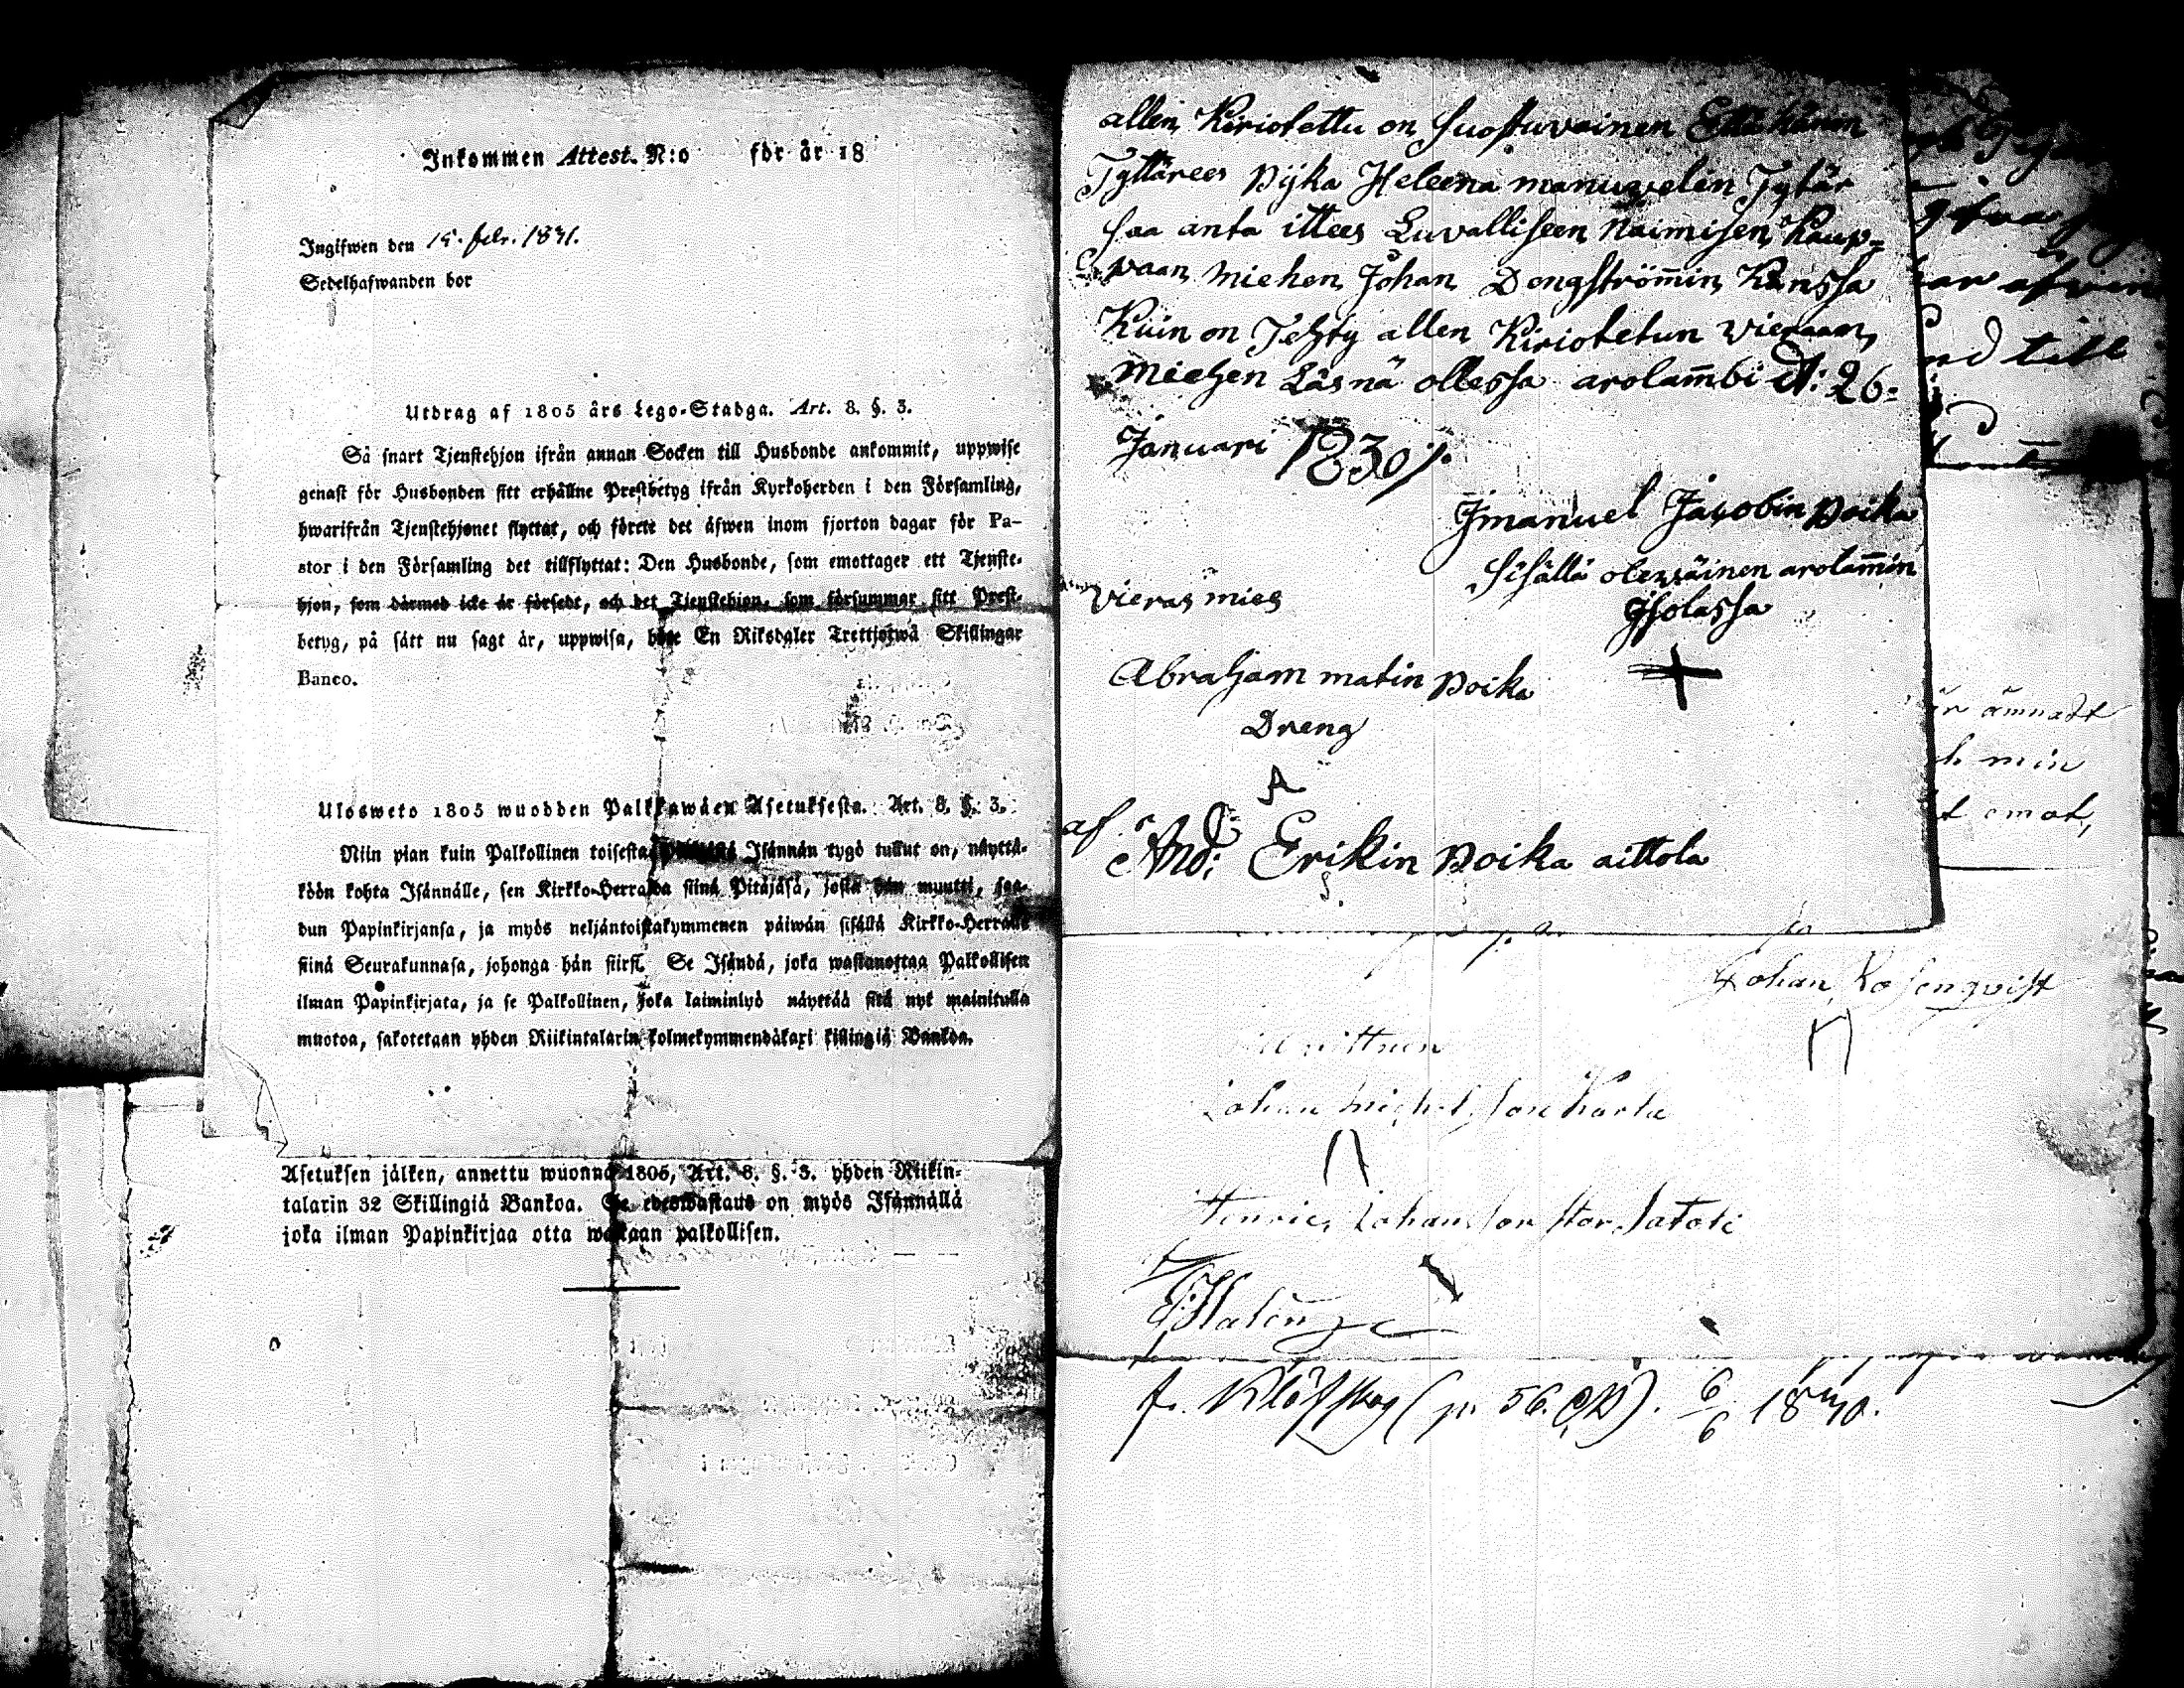 Inkommen Attest. N:o för år 18
Ingifwen den 15. febr. 1831.
Sedelhafwanden bor
Utdrag af 1805 års Lego-Stadga. Art. 8. §. 3.
Så snart Tjenstehjon ifrån annan Socken till Husbonde ankommit, uppwise
genast för Husbonden sitt erhållne Prestbetyg ifrån Kyrkoherden i den Församling,
hwarifrån Tjenstehjonet flyttat, och förete det äfwen inom fjorton dagar för Pa-
stor i den Församling det tillflyttat: Den Husbonde, som emottager ett Tjenste-
hjon, som därmed icke är försedt, och det Tjenstehjon, som försummar sitt Prest-
betyg, på sätt nu sagt är, uppwisa, böte En Riksdaler Trettjotwå Skillingar
Banco.
Ulosweto 1805 wuodden Palkkawäen Asetuksesta. Art. 8. §. 3.
Niin pian kuin Palkollinen toisesta Isännän tygö tullut on, näyttä-
köön kohta Isännälle, sen Kirkko-Herralda siinä Pitäjäsä, josta hän muutti, saa-
dun Papinkirjansa, ja myös neljäntoistakymmenen päiwän sisällä Kirkko-Herralle
siinä Seurakunnasa, johonga hän siirsi. Se Isändä, joka wastanottaa Palkollisen
ilman Papinkirjata, ja se Palkollinen, joka laiminlyö näyttää sitä nyt mainitulla
muotoa, sakotetaan yhden Riikintalarin kolmekymmendäkaxi killingiä Bankoa.
Asetuksen jälken, annettu wuonna 1805, Art. 8. §. 3. yhden Riikin-
talarin 32 Skillingiä Bankoa. Se edeswastaus on myös Isännällä
joka ilman Papinkirjaa otta wastaan palkollisen.
allen Kiriotettu on suostuvainen Että hänen
Tyttärees Pijka Heleena manuvelin Tytär
saa anta ittees Luvalliseen Naimisen Kaup=
vaan miehen Johan Dongströmin Kanssa
Kuin on Tehty allen Kiriotetun vieraan
miehen Läsnä ollessa arolambi d: 26=
Januari 1830 /.
Imanuel Jacobin Poika
sisällä olevainen arolamin
Isolassa
vieras mies
Abraham matin Poika
Dreng
A
af And: Erikin Poika aittola
är ämnadt
min
nd till
Johan Rosenqvist
Wittnen
Johan Michelsson Karla
Henric Johansson Stor Satoti
f. Klöfskog (p. 56. ). 6/6 1840.